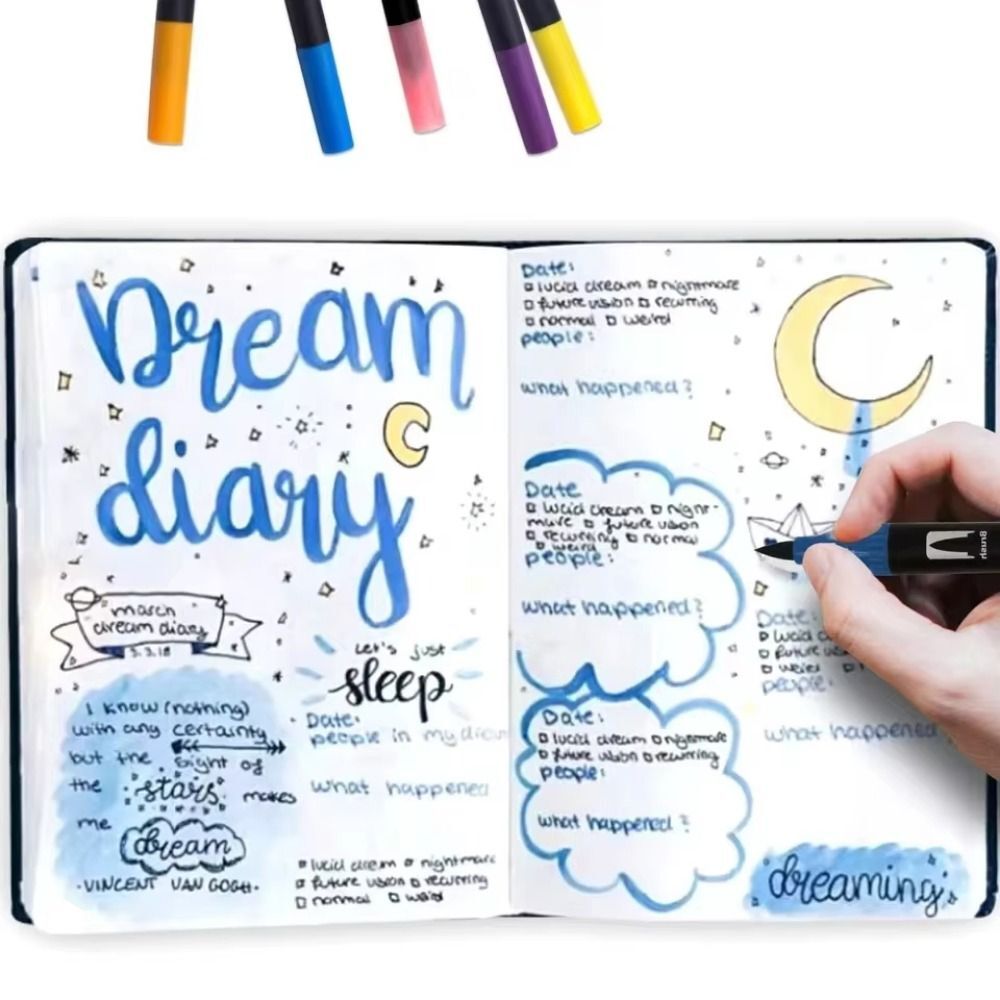 Dream
diary
march
dream diary
3.3.18
I know (nothing)
with any certainty
but the sight of
the stars makes
me dream
·VINCENT VAN GOGH·
Let's just
sleep
Date:
people in my
what happened
lucid dream nightmare
future vision recurring
normal weird
Date:
lucid dream nightmare
future vision recurring
normal weird
people:
what happened?
Date
lucid dream night-
mare future vision
recurring normal
weird
people:
what happened?
Date:
lucid dream nightmare
future vision recurring
people:
what happened?
Date:
lucid
future
weird
people:
what happened
dreaming
Brush